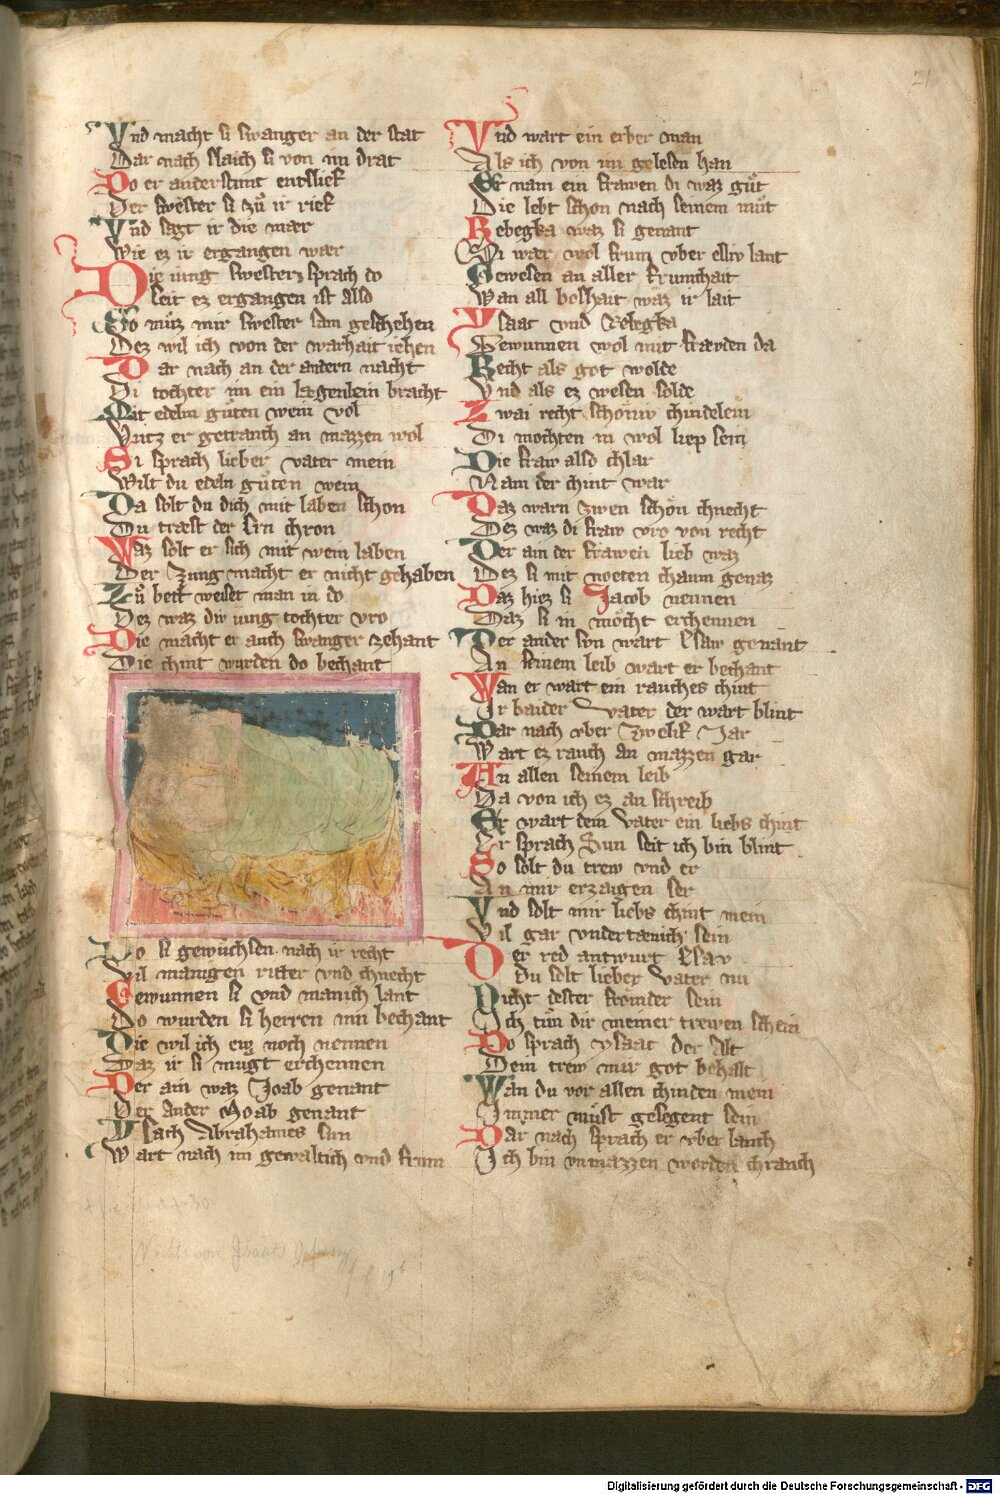 21
Vnd macht si swanger an der stat
Dar nach slaich si von im drat
Do er anderstunt entslief
Der swester si zů ir rief
Vnd sagt ir die mær
Wie ez ir ergangen wær
Die iung swesterz sprach do
Seit ez ergangen ist also
So můz mir swester sam geschehen
Dez wil ich von der warhait iehen
Dar nach an der andern nacht
Di tochter im ein lægenlein bracht
Mit edelm gůten wein vol
Vntz er getranch an mazzen wol
Si sprach lieber vater mein
Wilt du edeln gůten wein
Da solt du dich mit laben schon
Du træst der ern chron
Waz solt er sich mit wein laben
Der Zung macht er nicht gehaben
Zů bett weiset man in do
Dez waz diw iung tochter vro
Die macht er auch swanger zehant
Die chint wurden do bechant
Do si gewůchsen nach ir recht
Vil manigen ritter vnd chnecht
Gewunnen si vnd manich lant
Do wurden si herren inn bechant
Die wil ich ew noch nennen
Daz ir si mugt erchennen
Der ain waz Joab genant
Der ander Moab genant
Ysach Abrahames sun
Wart nach im gewaltich vnd frum
Vnd wart ein erber man
Als ich von im gelesen han
Er nam ein frawen di waz gůt
Die lebt schon nach seinem můt
Rebegka waz si genant
Si war wol frum vber elliv lant
Gewesen an aller frumchait
Wan all boshait waz ir lait
Ysaac vnd Rebegka
Gewunnen wol mit fræwden da
Recht als got wolde
Vnd als ez wesen solde
Zwai recht schöniv chindelein
Di mochten in wol liep sein
Die fraw also chlar
Nam der chint war
Daz warn zwen schön chnecht
Dez waz di fraw vro von recht
Der ain der frawen lieb waz
Dez si mit noeten chaum genaz
Daz hiez si Jacob nennen
Daz si in möcht erchennen
Der ander son wart Esaw genant
An seinem leib wart er bechant
Wan er wart ein rauches chint
Ir baider Vater der wart blint
Dar nach vber Zwelif Jar
Wart ez rauch an mazzen gar
An allen seinem leib
Da von ich ez an schreib
Er wart dem Vater ein liebs chint
Er sprach Sun seit ich bin blint
So solt du trew vnd er
An mir erzaigen ser
Vnd solt mir liebs chint mein
Vil gar vndertænich sein
Der red antwurt Esav
Du solt lieber Vater nu
Nicht dester frömder sein
Ich tůn dir meiner trewen schein
Do sprach ysaac der Alt
Dein trew mir got behalt
Wan du vor allen chinden mein
Immer můst gesegent sein
Dar nach sprach er vber lauch
Ich bin vnmazzen worden chranch
Nichts von Isaacs Opferung
Digitalisierung gefördert durch die Deutsche Forschungsgemeinschaft - DFG